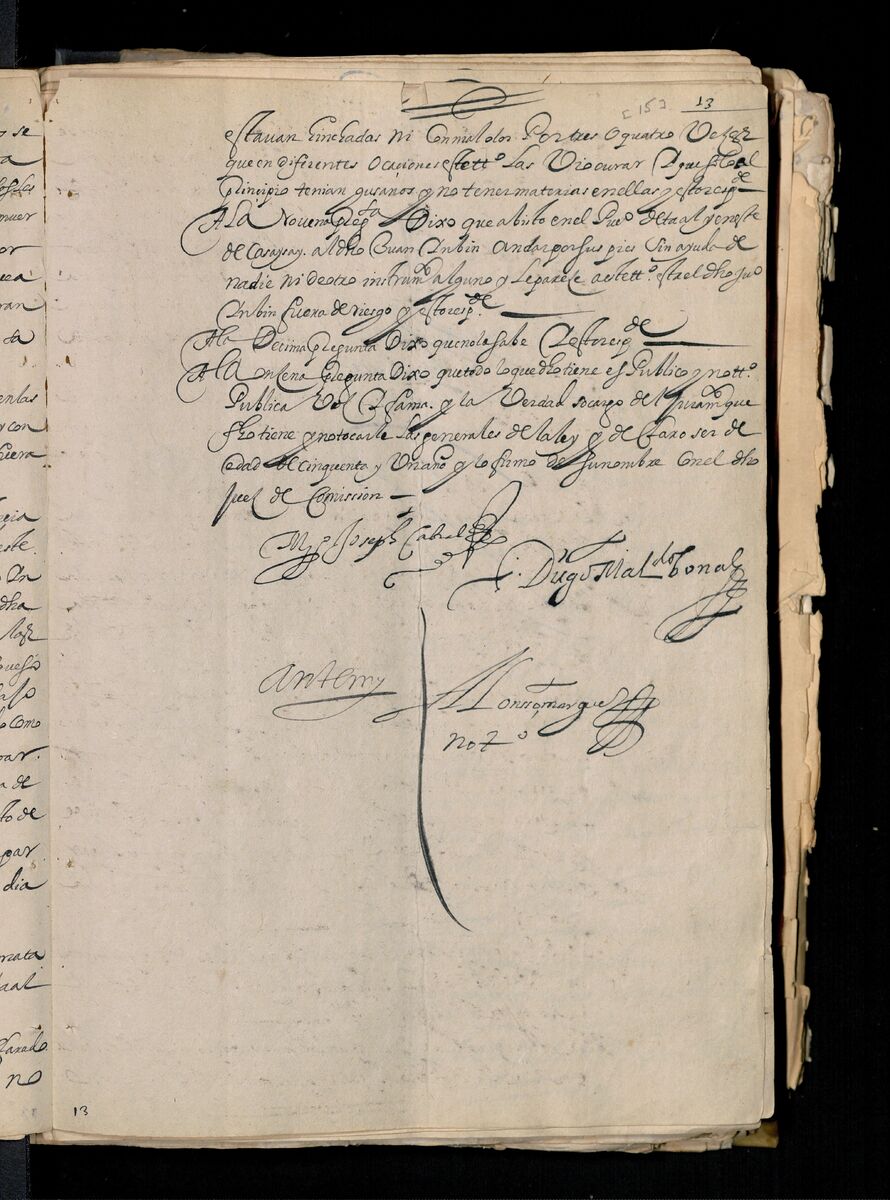 13
157
estavan hinchadas ni con mal olor Por tres o quatro Vezes
que en diferentes ocaciones este tto. las Vio curar Aque solo al
principio tenian gusanos y no tener materias en ellas y esto respde
A La Novena pregta Dixo que a bisto en el Puo de taal y en este
de Casaysay. al dho Juan Rubin andar por sus pies sin ayuda de
nadie ni de otro instrumto alguno y le pareze a este tto. estar el dho Juo
Rubin fuera de riesgo y esto respde.
A la Decima pregunta Dixo que no la sabe y esto respde
A la onzena Pregunta Dixo que todo lo que dho tiene es Publico y notto.
Publica Voz y fama. y la Verdad so cargo del Juramto que
fho tiene y no tocarle las generales de la ley y declaro ser de
edad de cinquenta y Un año y lo firmo de su nombre con el dho
juez de Comission
Joseph Cabral
Diego Maldo bonal
Ante my
Alonso marquez
Noto
13